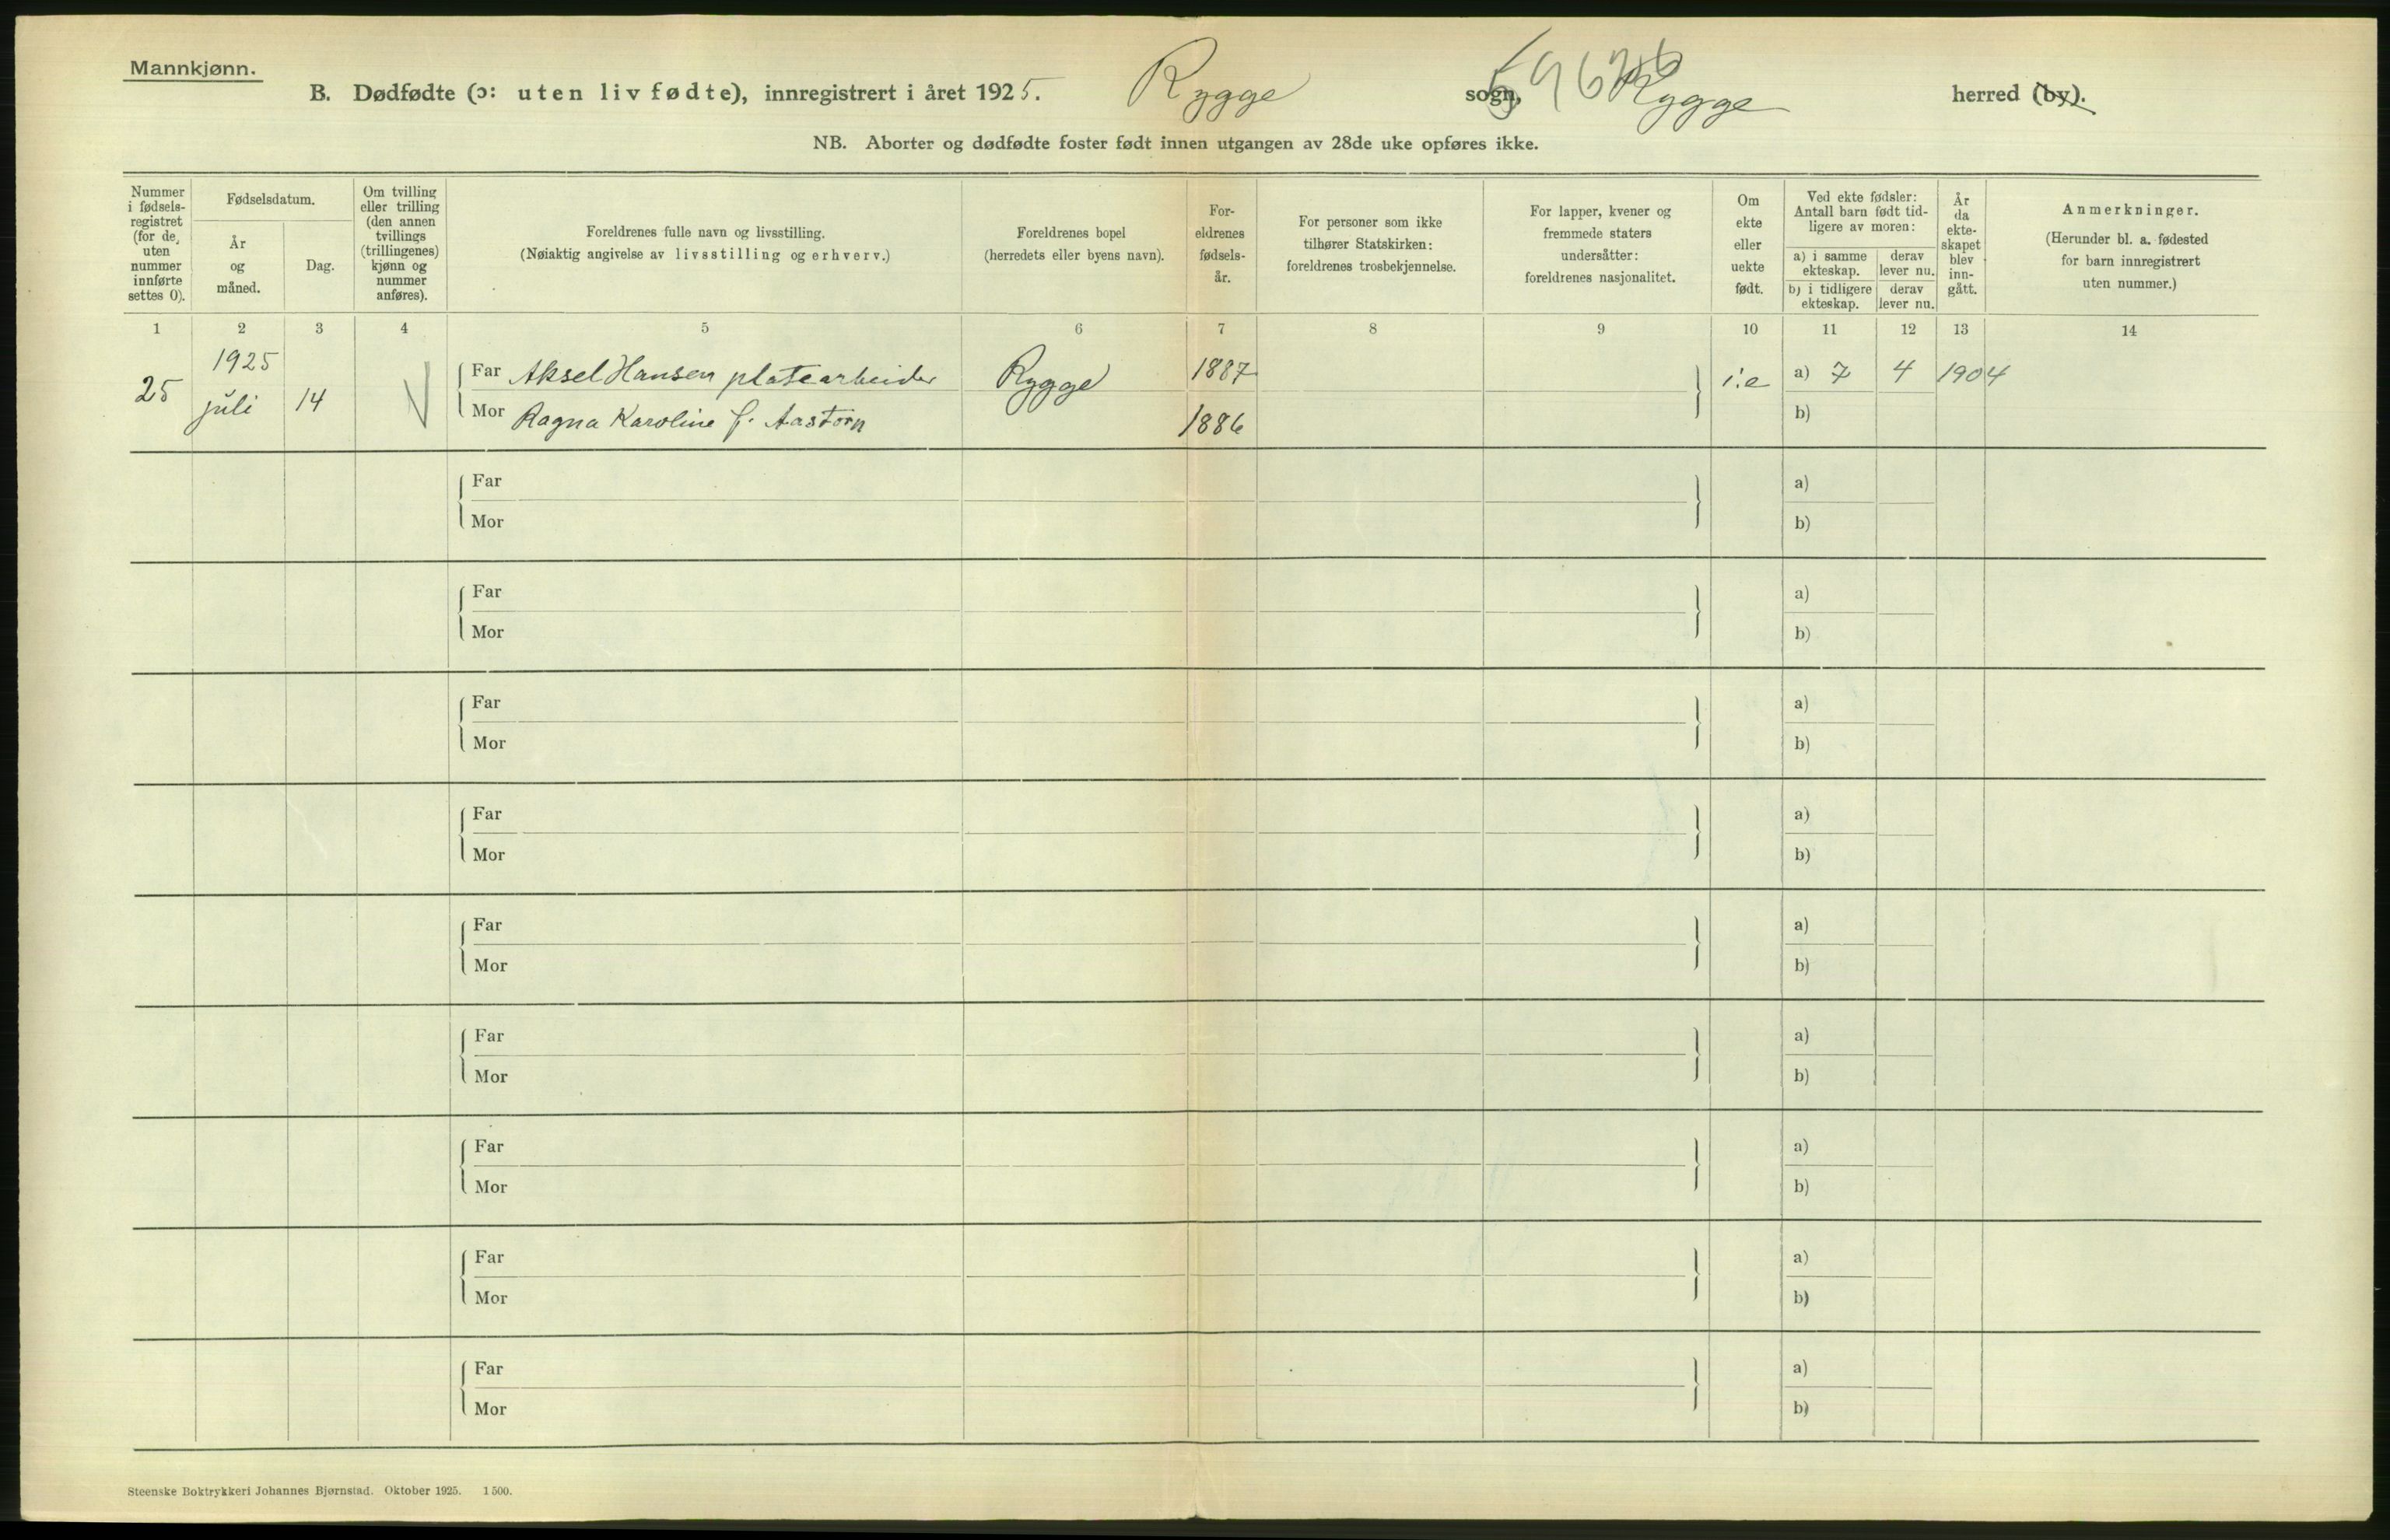 Mannkjønn.
B. Dødfødte (ɔ: uten liv fødte), innregistrert i året 1925. Rygge sogn, Rygge herred (by).
NB. Aborter og dødfødte foster født innen utgangen av 28de uke opføres ikke.
Nummer i fødsels-registret (for de uten nummer innførte settes 0).
Fødselsdatum.
År og måned.
Dag.
Om tvilling eller trilling (den annen tvillings (trillingenes) kjønn og nummer anføres).
Foreldrenes fulle navn og livsstilling.
(Nøiaktig angivelse av livsstilling og erhverv.)
Foreldrenes bopel
(herredets eller byens navn).
For-eldrenes fødsels-år.
For personer som ikke tilhører Statskirken: foreldrenes trosbekjennelse.
For lapper, kvener og fremmede staters undersåtter: foreldrenes nasjonalitet.
Om ekte eller uekte født.
Ved ekte fødsler: Antall barn født tid-ligere av moren:
a) i samme ekteskap.
derav lever nu.
b) i tidligere ekteskap.
derav lever nu.
År da ekte-skapet blev inn-gått.
Anmerkninger.
(Herunder bl. a. fødested for barn innregistrert uten nummer.)
1 2 3 4 5 6 7 8 9 10 11 12 13 14
25 1925 juli 14 Far Aksel Hansen platearbeider Rygge 1887 i:e a) 7 4 1904
Mor Ragna Karoline f. Aastorn 1886 b)
Far a)
Mor b)
Far a)
Mor b)
Far a)
Mor b)
Far a)
Mor b)
Far a)
Mor b)
Far a)
Mor b)
Far a)
Mor b)
Far a)
Mor b)
Far a)
Mor b)
Steenske Boktrykkeri Johannes Bjørnstad. Oktober 1925. 1500.